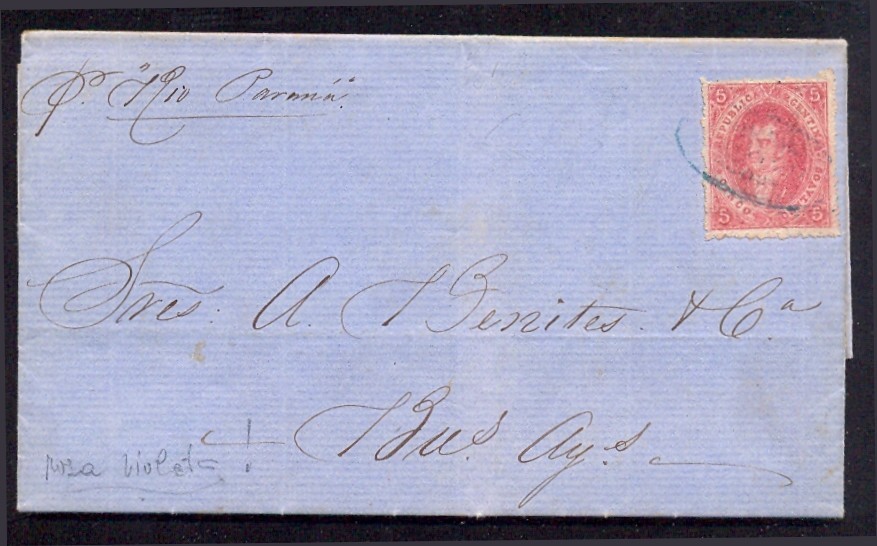 pr. "Rio Paraná"
5 5
REPUBLICA ARGENTINA
CINCO CENTAVOS
5 5
Sres. A. Benites. & Ca
Bus. Ays.
rosa violeta